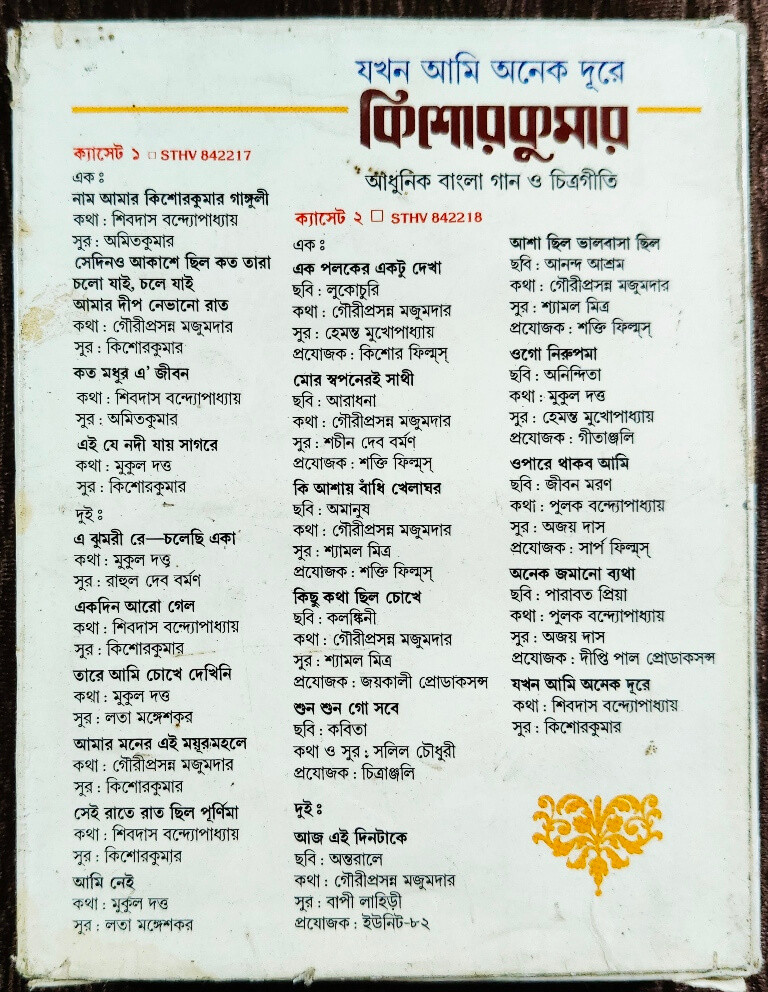 যখন আমি অনেক দূরে
কিশোরকুমার
আধুনিক বাংলা গান ও চিত্রগীতি
ক্যাসেট ১ □ STHV 842217
এক :
নাম আমার কিশোরকুমার গাঙ্গুলী
কথা : শিবদাস বন্দ্যোপাধ্যায়
সুর : অমিতকুমার
সেদিনও আকাশে ছিল কত তারা
চলো যাই, চলে যাই
আমার দীপ নেভানো রাত
কথা : গৌরীপ্রসন্ন মজুমদার
সুর : কিশোরকুমার
কত মধুর এ' জীবন
কথা : শিবদাস বন্দ্যোপাধ্যায়
সুর : অমিতকুমার
এই যে নদী যায় সাগরে
কথা : মুকুল দত্ত
সুর : কিশোরকুমার
দুই :
এ ঝুমরী রে—চলেছি একা
কথা : মুকুল দত্ত
সুর : রাহুল দেব বর্মণ
একদিন আরো গেল
কথা : শিবদাস বন্দ্যোপাধ্যায়
সুর : কিশোরকুমার
তারে আমি চোখে দেখিনি
কথা : মুকুল দত্ত
সুর : লতা মঙ্গেশকর
আমার মনের এই ময়ূরমহলে
কথা : গৌরীপ্রসন্ন মজুমদার
সুর : কিশোরকুমার
সেই রাতে রাত ছিল পূর্ণিমা
কথা : শিবদাস বন্দ্যোপাধ্যায়
সুর : কিশোরকুমার
আমি নেই
কথা : মুকুল দত্ত
সুর : লতা মঙ্গেশকর
ক্যাসেট ২ □ STHV 842218
এক :
এক পলকের একটু দেখা
ছবি : লুকোচুরি
কথা : গৌরীপ্রসন্ন মজুমদার
সুর : হেমন্ত মুখোপাধ্যায়
প্রযোজক : কিশোর ফিল্মস্
মোর স্বপনেরই সাথী
ছবি : আরাধনা
কথা : গৌরীপ্রসন্ন মজুমদার
সুর : শচীন দেব বর্মণ
প্রযোজক : শক্তি ফিল্মস্
কি আশায় বাঁধি খেলাঘর
ছবি : অমানুষ
কথা : গৌরীপ্রসন্ন মজুমদার
সুর : শ্যামল মিত্র
প্রযোজক : শক্তি ফিল্মস্
কিছু কথা ছিল চোখে
ছবি : কলঙ্কিনী
কথা : গৌরীপ্রসন্ন মজুমদার
সুর : শ্যামল মিত্র
প্রযোজক : জয়কালী প্রোডাকসন্স
শুন শুন গো সবে
ছবি : কবিতা
কথা ও সুর : সলিল চৌধুরী
প্রযোজক : চিত্রাঞ্জলি
দুই :
আজ এই দিনটাকে
ছবি : অন্তরালে
কথা : গৌরীপ্রসন্ন মজুমদার
সুর : বাপী লাহিড়ী
প্রযোজক : ইউনিট-৮২
আশা ছিল ভালবাসা ছিল
ছবি : আনন্দ আশ্রম
কথা : গৌরীপ্রসন্ন মজুমদার
সুর : শ্যামল মিত্র
প্রযোজক : শক্তি ফিল্মস্
ওগো নিরুপমা
ছবি : অনিন্দিতা
কথা : মুকুল দত্ত
সুর : হেমন্ত মুখোপাধ্যায়
প্রযোজক : গীতাঞ্জলি
ওপারে থাকব আমি
ছবি : জীবন মরণ
কথা : পুলক বন্দ্যোপাধ্যায়
সুর : অজয় দাস
প্রযোজক : সার্প ফিল্মস্
অনেক জমানো ব্যথা
ছবি : পারাবত প্রিয়া
কথা : পুলক বন্দ্যোপাধ্যায়
সুর : অজয় দাস
প্রযোজক : দীপ্তি পাল প্রোডাকসন্স
যখন আমি অনেক দূরে
কথা : শিবদাস বন্দ্যোপাধ্যায়
সুর : কিশোরকুমার